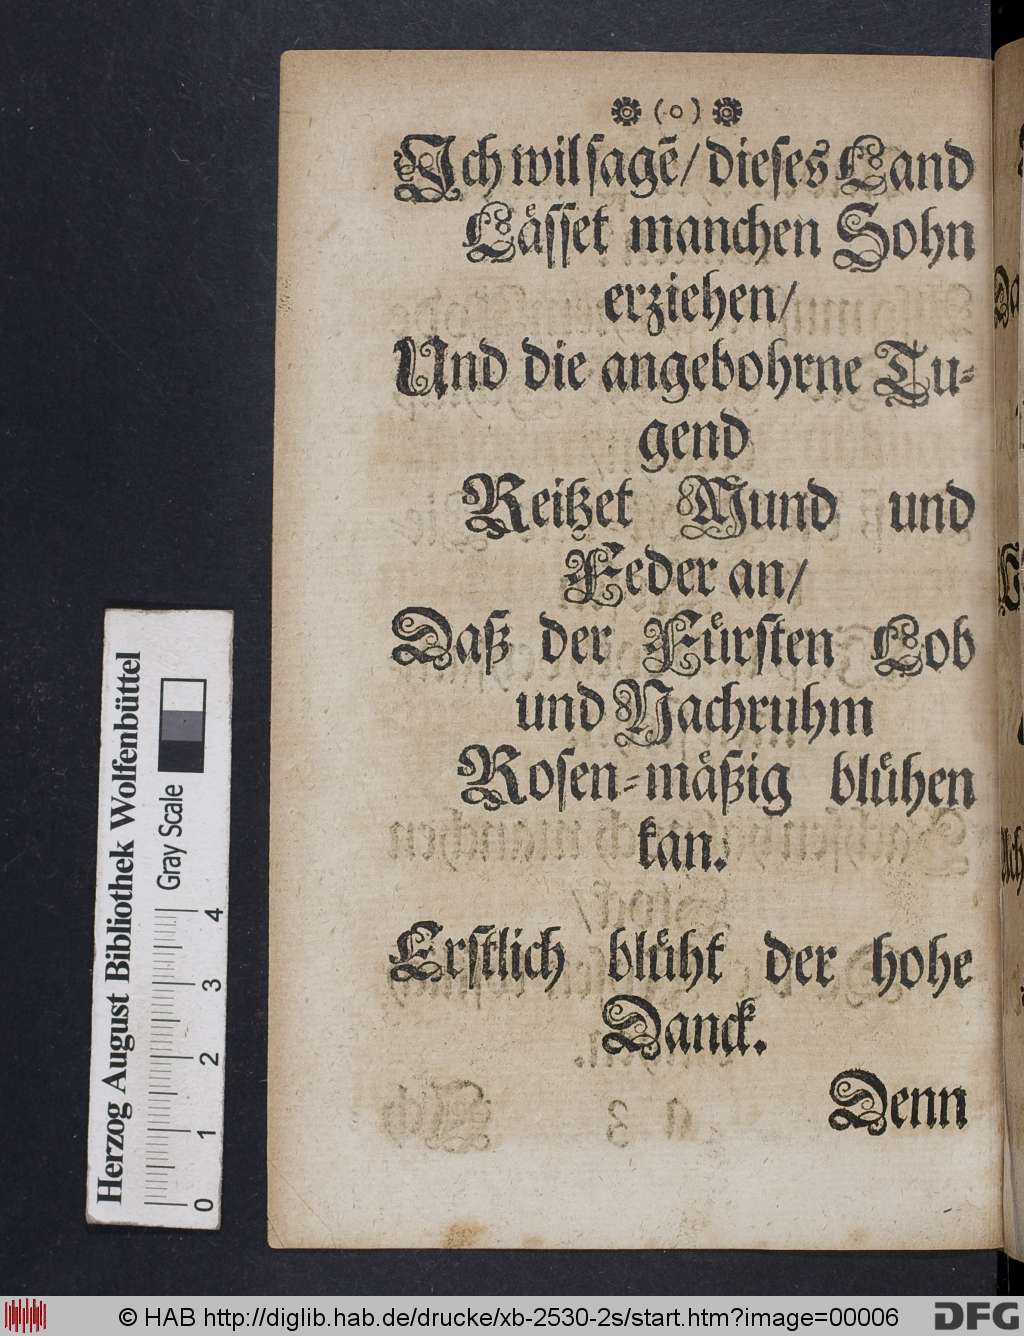 (o)
Ich wil sagẽ/ dieses Land
Låsset manchen Sohn
erziehen/
Und die angebohrne Tu-
gend
Reitzet Mund und
Feder an/
Daß der Fuͤrsten Lob
und Nachruhm
Rosen-maͤßig bluͤhen
kan.
Erstlich bluͤht der hohe
Danck.
Denn
Herzog August Bibliothek Wolfenbüttel
Gray Scale
0 1 2 3 4
© HAB http://diglib.hab.de/drucke/xb-2530-2s/start.htm?image=00006
DFG